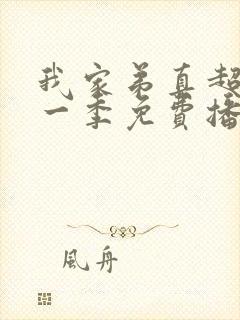 我家弟真超
一季免費播
風舟